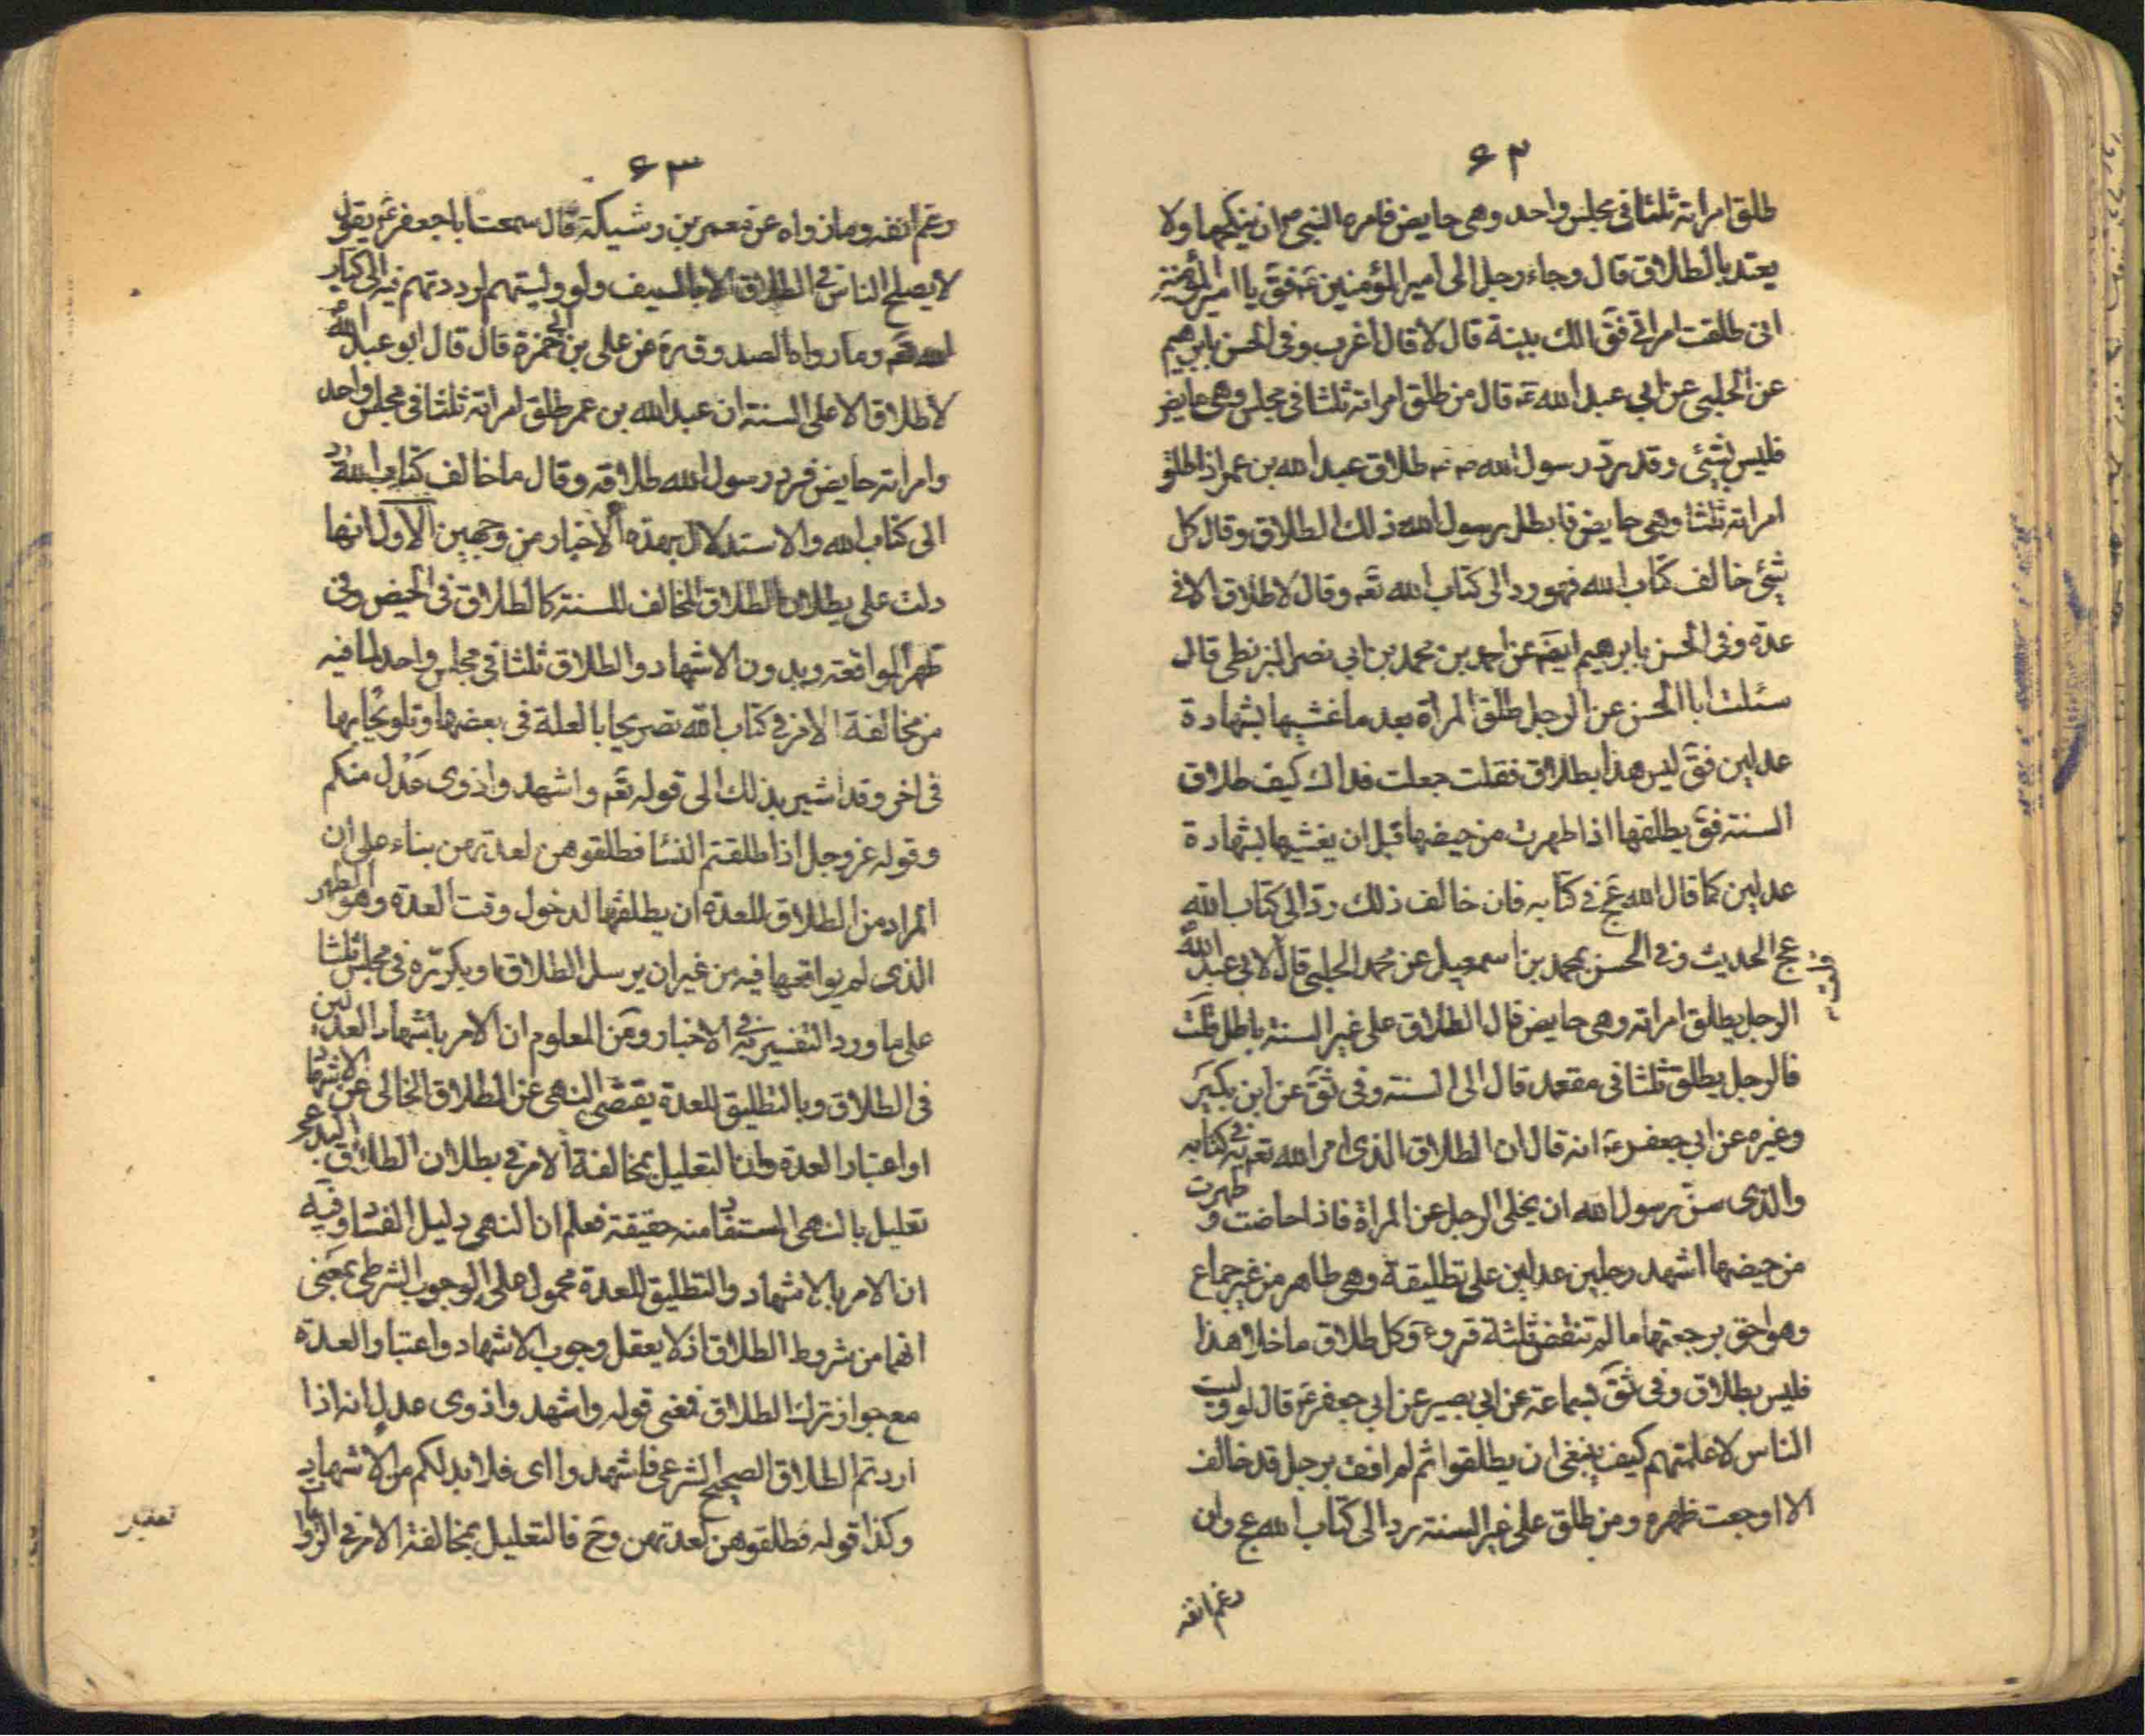 ۶۲
طلق امراته ثلثا فى مجلس واحد وهى حايض فامره النبى ص ان ينكحها ولا
يعتد بالطلاق قال وجاء رجل الى امير المؤمنين ع فق يا امير المؤمنين
انى طلقت امراتى فق الك بينة قال لا قال اغرب وفى الحسن بابرهيم
عن الحلبى عن ابى عبد الله ع قال من طلق امراته ثلثا فى مجلس وهى حايض
فليس بشئ وقد رد رسول الله ص طلاق عبد الله بن عمر اذا طلق
امراته ثلثا وهى حايض فابطل رسول الله ذلك الطلاق وقال كل
شئ خالف كتاب الله فهو رد الى كتاب الله تع وقال لا طلاق الا فى
عدة وفى الحسن بابرهيم ايض عن احمد بن محمد بن ابى نصر البزنطى قال
سئلت ابا الحسن عن الرجل طلق المراة بعد ما غشيها بشهادة
عدلين فق ليس هذا بطلاق فقلت جعلت فداك كيف طلاق
السنة فق يطلقها اذا طهرت من حيضها قبل ان يغشيها بشهادة
عدلين كما قال الله عج فى كتابه فان خالف ذلك رد الى كتاب الله
عج الحديث وفى الحسن بمحمد بن اسمعيل عن محمد الحلبى قال لابى عبد الله
الرجل يطلق امراته وهى حايض قال الطلاق على غير السنة باطل قلت
فالرجل يطلق ثلثا فى مقعد قال الى السنة وفى ثق عن ابن بكير
وغيره عن ابى جعفر ع انه قال ان الطلاق الذى امر الله تع به فى كتابه
والذى سن رسول الله ان يخلى الرجل عن المراة فاذا حاضت و طهرت
من حيضها اشهد رجلين عدلين على تطليقة وهى طاهر من غير جماع
وهو احق برجعتها ما لم تنقض ثلثة قروء وكل طلاق ما خلا هذا
فليس بطلاق وفى ثق لسماعة عن ابى بصير عن ابى جعفر ع قال لو وليت
الناس لاعلمتهم كيف ينبغى ان يطلقوا ثم لم اوت برجل قد خالف
الا اوجعت ظهره ومن طلق على غير السنة رد الى كتاب الله عج وان
رغم انفه
۶۳
رغم انفه وما رواه عن معمر بن وشيكة قال سمعت ابا جعفر ع يقول
لا يصلح الناس فى الطلاق الا بالسيف ولو وليتهم لرددتهم فيه الى كتاب
الله تع وما رواه الصدوق ره عن على بن ابى حمزة قال قال ابو عبد الله
لا طلاق الا على السنة ان عبد الله بن عمر طلق امراته ثلثا فى مجلس واحد
وامراته حايض فرد رسول الله طلاقه وقال ما خالف كتاب الله رد
الى كتاب الله والاستدلال بهذه الاخبار من وجهين الاول انها
دلت على بطلان الطلاق المخالف للسنة كالطلاق فى الحيض وفى
طهر المواقعة وبدون الاشهاد والطلاق ثلثا فى مجلس واحد لما فيه
من مخالفة الامر فى كتاب الله تصريحا بالعلة فى بعضها وتلويحا بها
فى اخر وقد اشير بذلك الى قوله تع واشهدوا ذوى عدل منكم
وقوله عز وجل اذا طلقتم النسا فطلقوهن لعدتهن بناء على ان
المراد من الطلاق للعدة ان يطلقها لدخول وقت العدة وهو الطهر
الذى لم يواقعها فيه من غير ان يرسل الطلاق او يكرره فى مجلس ثلثا
على ما ورد التفسير به فى الاخبار ومن المعلوم ان الامر باشهاد العدلين
فى الطلاق وبالتطليق للعدة يقتضى النهى عن الطلاق الخالى عن الاشهاد
او اعتبار العدة وان التعليل بمخالفة الامر فى بطلان الطلاق البدعى
تعليل بالنهى المستفاد منه حقيقة فعلم ان النهى دليل الفساد وفيه
ان الامر بالاشهاد والتطليق للعدة محمول على الوجوب الشرطى بمعنى
انهما من شروط الطلاق اذ لا يعقل وجوب الاشهاد واعتبار العدة
مع جواز ترك الطلاق فمعنى قوله واشهدوا ذوى عدل انه اذا
اردتم الطلاق الصحيح الشرعى فاشهدوا اى فلا بد لكم من الاشهاد
وكذا قوله فطلقوهن لعدتهن وح فالتعليل بمخالفة الامر فى الروايات